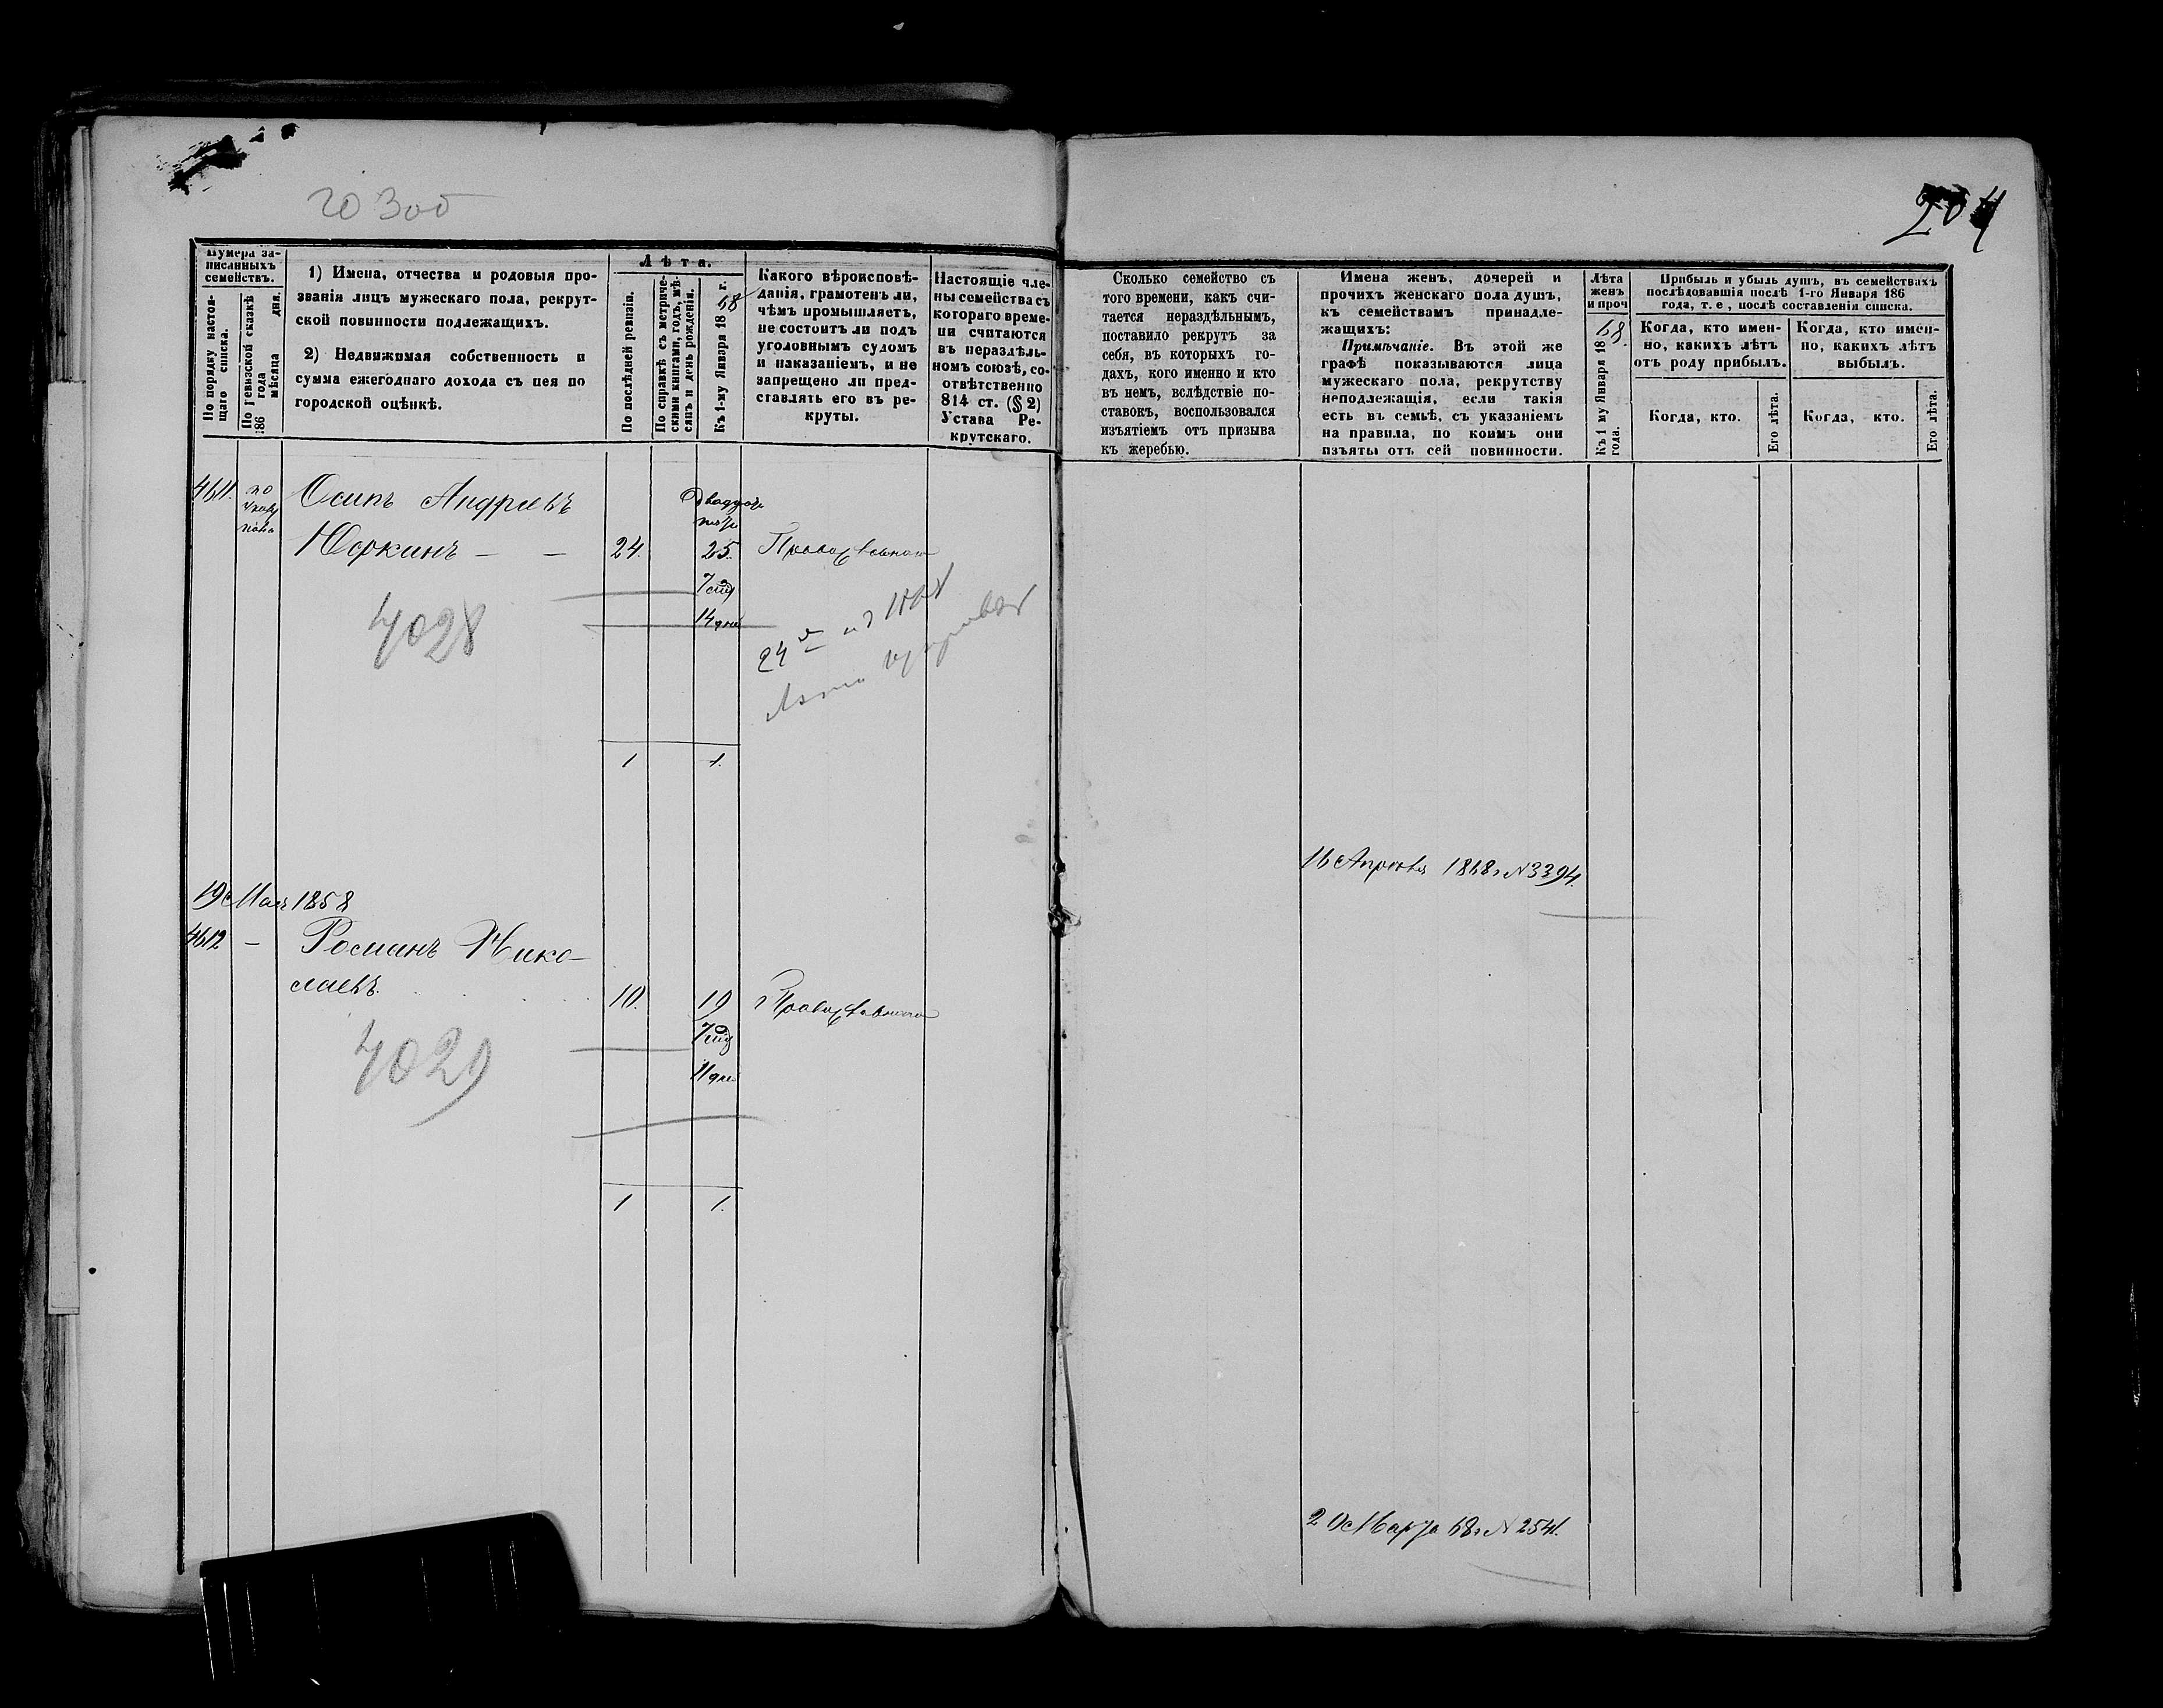 204
Нумера за-
писанныхъ
семействъ.
По порядку настоя-
щаго списка.
По ревизской сказкѣ
186 года
мѣсяца дня.
1) Имена, отчества и родовыя про-
званія лицъ мужескаго пола, рекрут-
ской повинности подлежащихъ.
2) Недвижимая собственность и
сумма ежегоднаго дохода съ нея по
городской оцѣнкѣ.
Лѣта.
По послѣдней ревизіи.
По справкѣ съ метриче-
скими книгами, годъ, мѣ-
сяцъ и день рожденія.
Къ 1-му Января 1868 г.
Какого вѣроисповѣ-
данія, грамотенъ ли,
чѣмъ промышляетъ,
не состоитъ ли подъ
уголовнымъ судомъ
и наказаніемъ, и не
запрещено ли пред-
ставлять его въ ре-
круты.
Настоящіе чле-
ны семейства съ
котораго време-
ни считаются
въ нераздѣль-
номъ союзѣ, со-
отвѣтственно
814 ст. (§ 2)
Устава Ре-
крутскаго.
Сколько семейство съ
того времени, какъ счи-
тается нераздѣльнымъ,
поставило рекрутъ за
себя, въ которыхъ го-
дахъ, кого именно и кто
въ немъ, вслѣдствіе по-
ставокъ, воспользовался
изъятіемъ отъ призыва
къ жеребью.
Имена женъ, дочерей и
прочихъ женскаго пола душъ,
къ семействамъ принадле-
жащихъ:
Примѣчаніе. Въ этой же
графѣ показываются лица
мужескаго пола, рекрутству
неподлежащія, если такія
есть въ семьѣ, съ указаніемъ
на правила, по коимъ они
изъяты отъ сей повинности.
Лѣта
женъ
и проч
Къ 1 му Января 1868
года.
Прибыль и убыль душъ, въ семействахъ
послѣдовавшія послѣ 1-го Января 186
года, т. е., послѣ составленія списка.
Когда, кто имен-
но, какихъ лѣтъ
отъ роду прибылъ.
Когда, кто имен-
но, какихъ лѣтъ
выбылъ.
Когда, кто.
Его лѣта.
Когда, кто.
Его лѣта.
4611. Осипъ Андреевъ
Юркинъ — — 24. 25. Православнаго
14 дне
4028
1 1.
16 Апрѣля 1868 г № 3394.
19 Мая 1858
4612 — Романъ Нико-
лаевъ. 10. 19 Православнаго
11 дне
4029
1 1.
20 Марта 68 г № 2541.